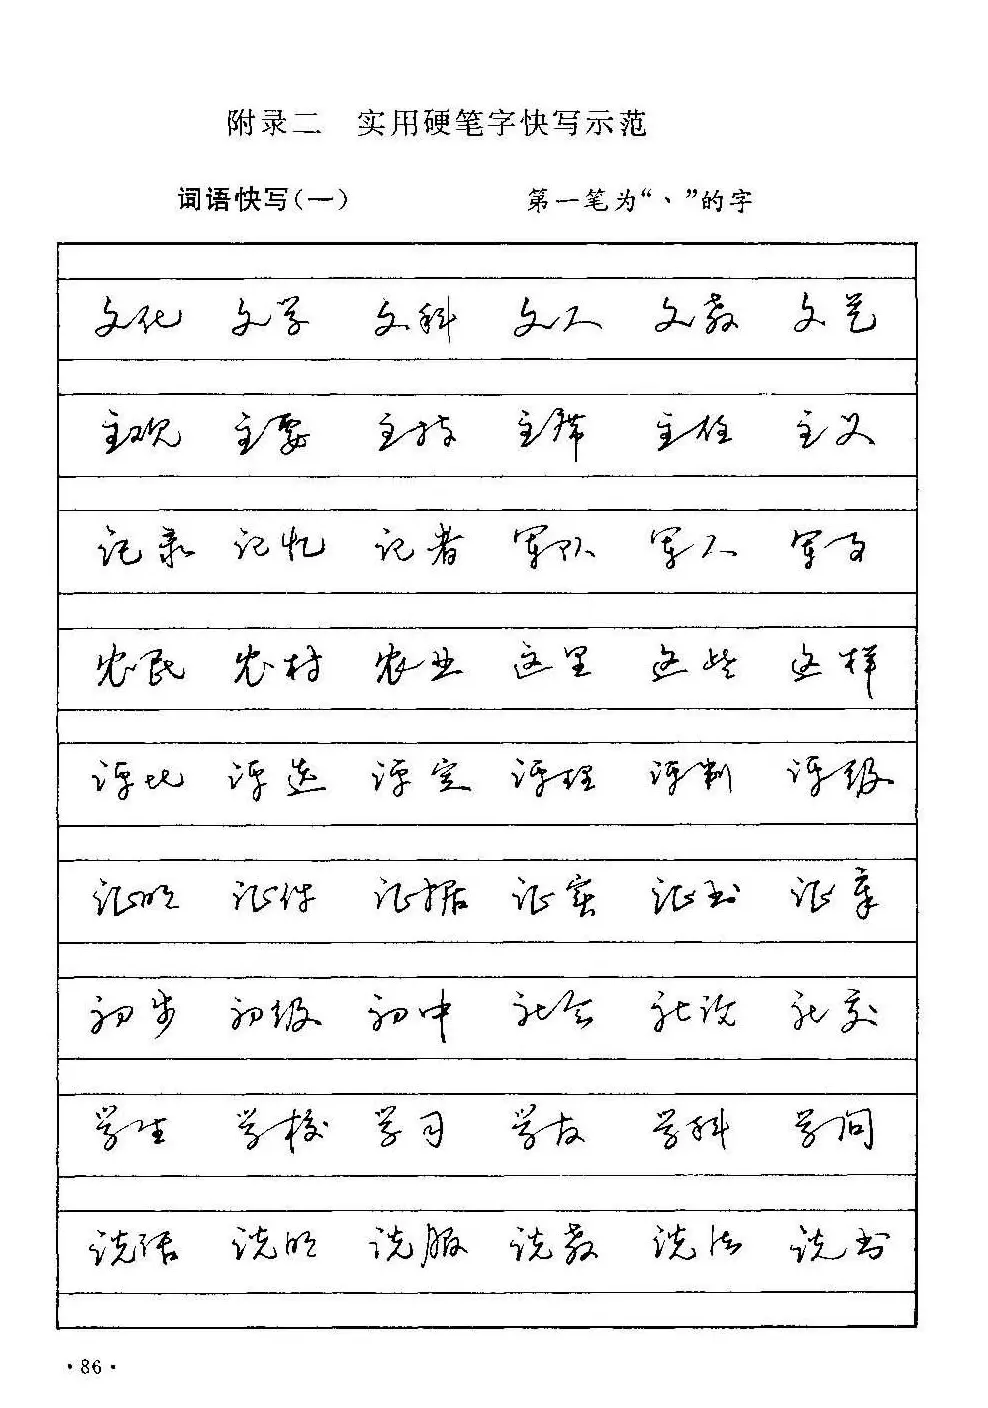 附录二 实用硬笔字快写示范
词语快写(一) 第一笔为“丶”的字
文化 文学 文科 文人 文教 文艺
主观 主要 主持 主席 主任 主义
记录 记忆 记者 军队 军人 军友
农民 农村 农业 这里 这些 这样
评比 评选 评定 评理 评判 评级
证明 证件 证据 证实 证书 证章
初步 初级 初中 社会 社论 社交
学生 学校 学习 学友 学科 学问
说话 说明 说服 说教 说法 说书
·86·